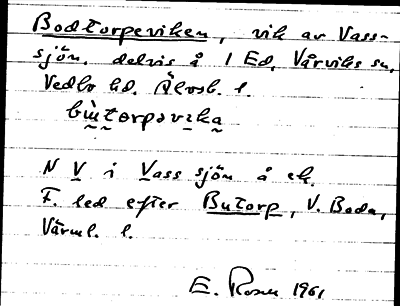 Bodtorpeviken, vik av Vass-
sjön. delvis å 1 Ed, Vårviks sn,
Vedbo hd. Älvsb. l.
bùtorpəvika
N V i Vass sjön å ek.
F. led efter Butorp, V. Boda,
Värml. l.
E. Rosen 1961